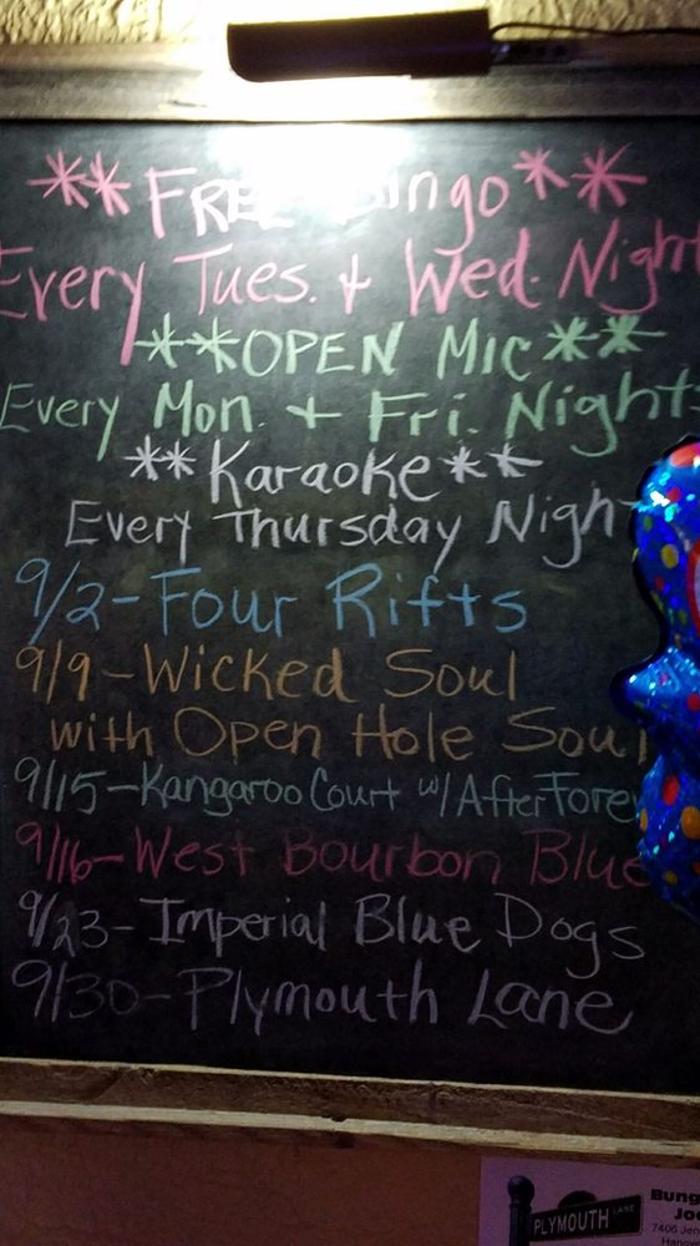 **FREE Bingo**
Every Tues. + Wed. Night
**OPEN MIC**
Every Mon. + Fri. Night
**Karaoke**
Every Thursday Nigh
9/2-Four Rifts
9/9-Wicked Soul
with Open Hole Soul
9/15-Kangaroo Court w/AfterForev
9/16-West Bourbon Blue
9/23-Imperial Blue Dogs
9/30-Plymouth Lane
PLYMOUTH LANE
Bung
Joe
7406 Jen
Hanov